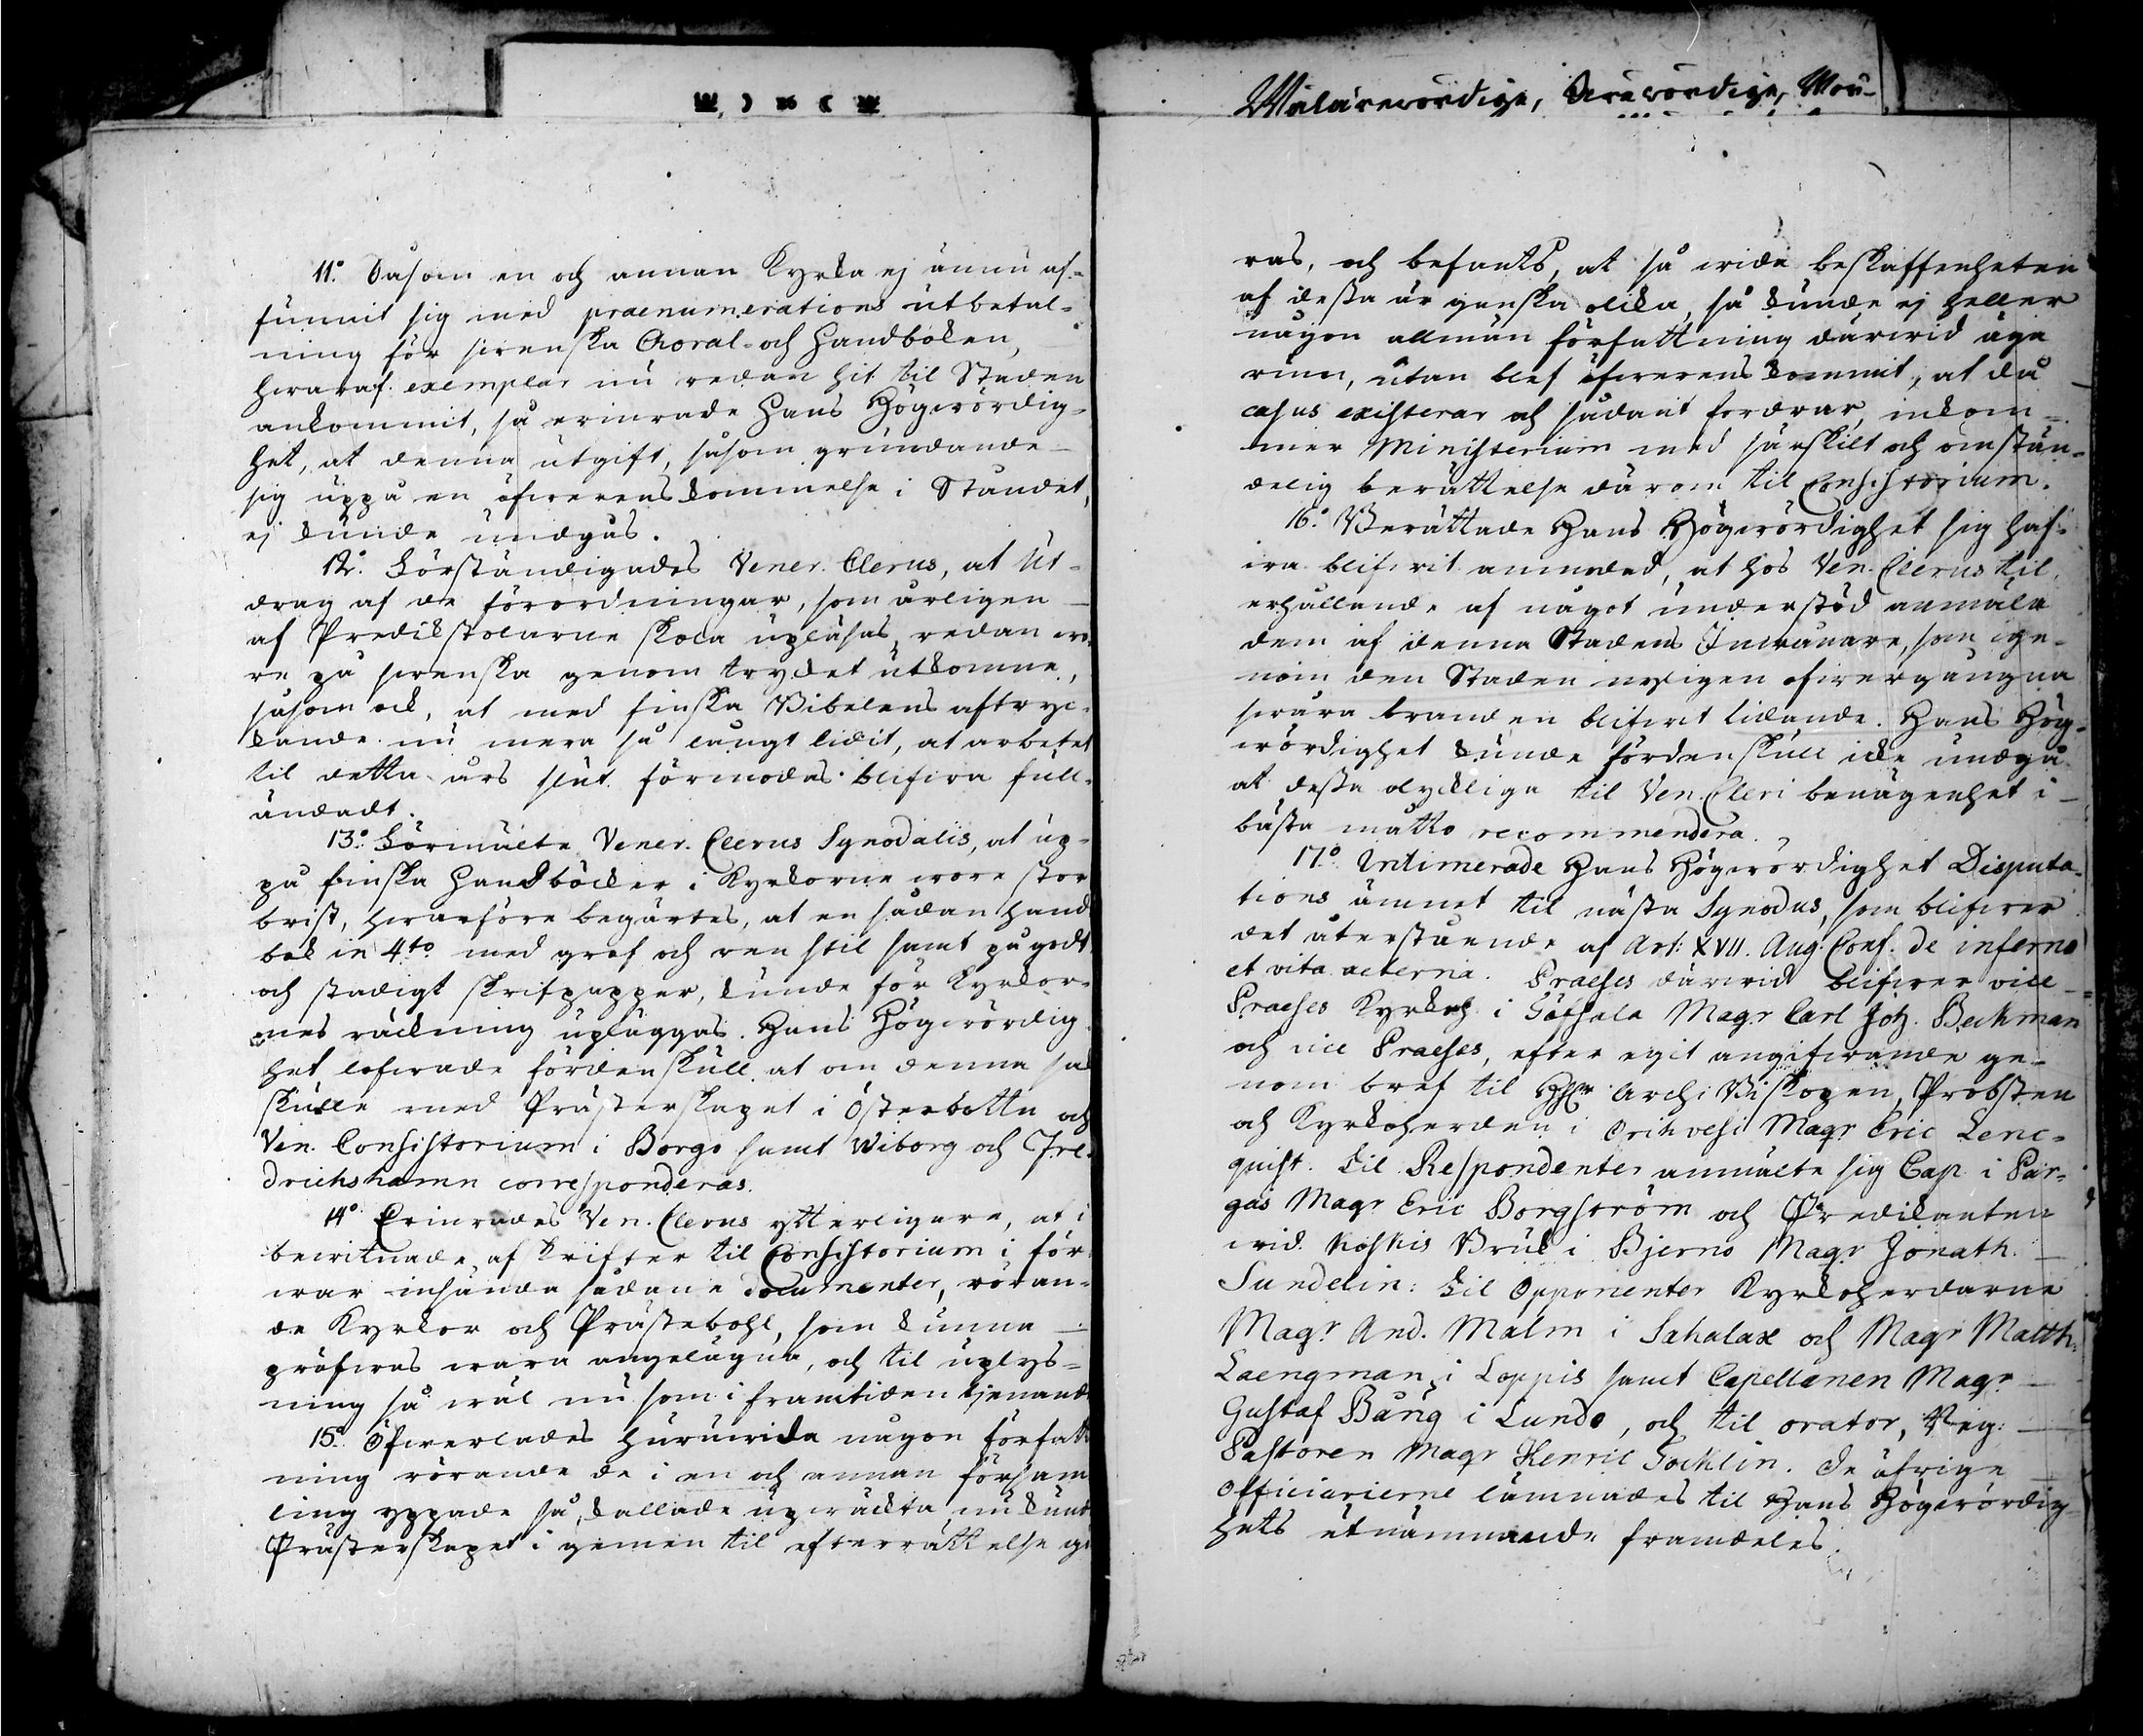 Wälärewördige, Ärewördige, Wör-
11:o Såsom en och annan Kyrka ej ännu af-
funnit sig med praenumerations utbetal-
ning för swenska Choral- och Handboken,
hwaraf exemplar nu redan hit til Staden
ankommit, så erinrade Hans Högwördig-
het, at denna utgift, såsom grundande
sig uppå en öfwerenskommelse i Ståndet,
ej kunde undgås.
12:o Förständigades Vener. Clerus, at Ut-
drag af de förordningar, som årligen
af Predikstolarne skola upläsas, redan wo-
re på swenska genom trycket utkomne,
såsom ock, at med finska Bibelens aftryc-
kande nu mera så långt lidit, at arbetet
til detta års slut förmodas blifwa full-
ändadt.
13:o Förmälte Vener. Clerus Synodalis, at up-
på finska Handböcker i Kyrkorne wore stor
brist, hwarföre begärtes, at en sådan Hand
bok in 4:to med grof och ren stil samt på godt
och stadigt skrifpapper, kunde för Kyrkor-
nes räkning upläggas. Hans Högwördig
het lofwade fördenskull at om denna sak
skulle med Prästerskapet i Österbotten och
Ven. Consistorium i Borgo samt Wiborg och Fre-
drichshamn corresponderas.
14:o Erinrades Ven. Clerus ytterligare, at i
bewitnade afskrifter til Consistorium i för
war insända sådane documenter, röran-
de Kyrkor och Prästebohl, som kunna
pröfwas wara angelägna, och til uplys-
ning så wäl nu som i framtiden tjenande
15:o Öfwerlades huruwida någon författ
ning rörande de i en och annan försam
ling yppade så kallade upwäckta, nu kund
Prästerskapet i gemen til efterrättelse gi
ras, och befants, at så wida beskaffenheten
af dessa är ganska olika, så kunde ej heller
någon allmän författning därwid äga
rum, utan blef öfwerenskommit, at då
casus existerar och sådant fordrar, inkom-
mer Ministerium med särskilt och omstän-
delig berättelse därom til Consistorium.
16:o Berättade Hans Högwördighet sig haf-
wa blifwit anmodad, at hos Ven. Clerus til
erhållande af något understöd anmäla
dem af denna Stadens Inwånare, som ige-
nom den Staden nyligen öfwergångna
swåra branden blifwit lidande. Hans Hög-
wördighet kunde fördenskull icke undgå
at dessa olyckliga til Ven. Cleri benägenhet i
bästa måtto recommendera.
17:o Intimerade Hans Högwördighet Disputa-
tions ämnet til nästa Synodus, som blifwer
det återstående af Art: XVII. Aug: Conf. de inferno
et vita aeterna. Praeses därwid blifwer vice
Praeses Kyrkoh. i Töfsala Mag:r Carl Joh. Beckman
och vice Praeses, efter egit angifwande ge-
nom bref til Hr Archi Biskopen, Probsten
och Kyrkoherden i Orihvesi Mag:r Eric Lenc-
quist. Til Respondenter anmälte sig Cap. i Par-
gas Mag:r Eric Borgström och Predikanten
wid Koskis Bruk i Bjerno Mag:r Jonath.
Sundelin: til Opponenter Kyrkoherdarne
Mag:r And. Malm i Sahalax och Mag:r Matth:
Laengman i Loppis samt Capellanen Mag:r
Gustaf Bång i Lundo, och til orator, Reg:
Pastoren Mag:r Henric Tocklin. De öfrige
Officiarierne lämnades til Hans Högwördig
hets utnämnande framdeles.